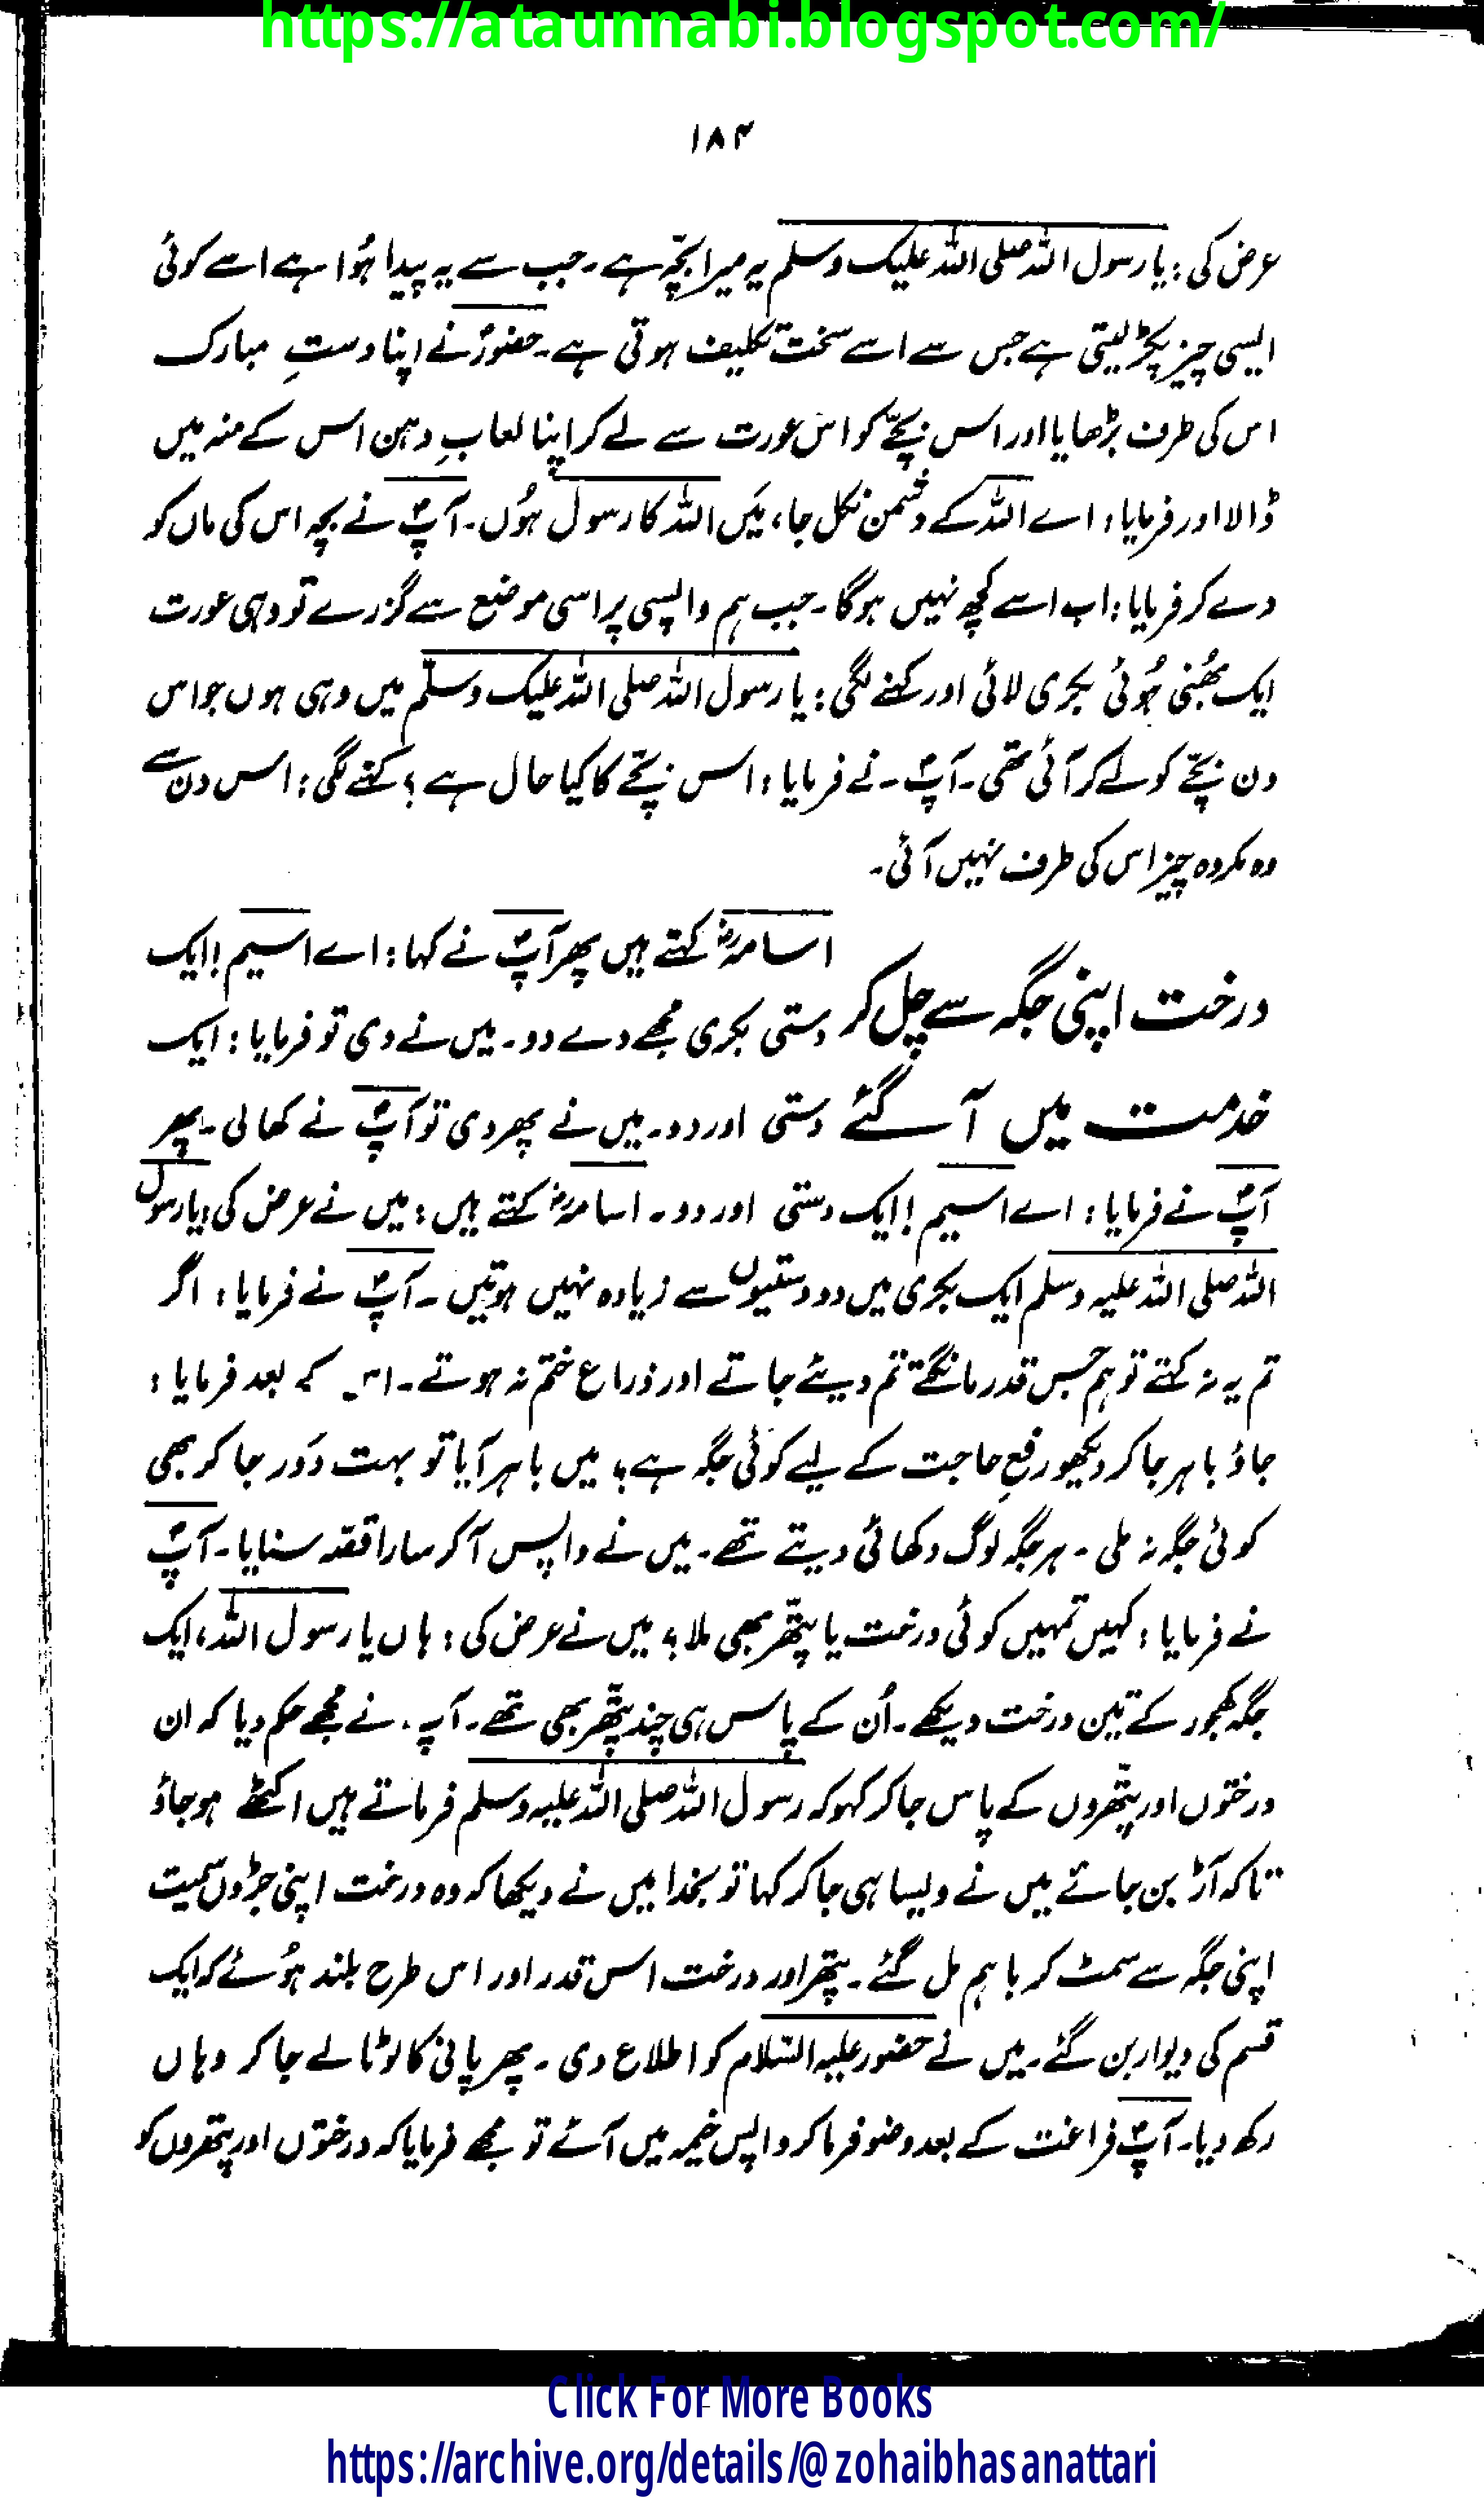 https://ataunnabi.blogspot.com/
۱۸۴
عرض کی: یا رسول اللہ صلی اللہ علیک وسلم یہ میرا بچّہ ہے۔ جب سے یہ پیدا ہُوا ہے اسے کوئی
ایسی چیز پکڑ لیتی ہے جس سے اسے سخت تکلیف ہوتی ہے۔ حضورؐ نے اپنا دستِ مبارک
اس کی طرف بڑھایا اور اس بچّے کو اس عورت سے لے کر اپنا لعابِ دہن اس کے منہ میں
ڈالا اور فرمایا: اے اللہ کے دشمن نکل جا، میَں اللہ کا رسول ہُوں۔ آپؐ نے بچہ اس کی ماں کو
دے کر فرمایا: اب اسے کچھ نہیں ہوگا۔ جب ہم واپسی پر اسی موضع سے گزرے تو وہی عورت
ایک بھُنی ہُوئی بکری لائی اور کہنے لگی: یا رسول اللہ صلی اللہ علیک وسلّم میں وہی ہوں جو اس
دن بچّے کو لے کر آئی تھی۔ آپؐ۔ نے فرمایا: اس بچّے کا کیا حال ہے؟ کہنے لگی: اس دن سے
وہ مکروہ چیز اس کی طرف نہیں آئی۔
درخت اپنی جگہ سے چل کر
خدمت میں آ گئے
اسامہؓ کہتے ہیں پھر آپؐ نے کہا: اے اسیم! ایک
دستی بکری مجھے دے دو۔ میں نے دی تو فرمایا: ایک
دستی اور دو۔ میں نے پھر دی تو آپؐ نے کھا لی۔ پھر
آپؐ نے فرمایا: اے اسیم! ایک دستی اور دو۔ اسامہؓ کہتے ہیں: میں نے عرض کی: یا رسول
اللہ صلی اللہ علیہ وسلم ایک بکری میں دو دستیوں سے زیادہ نہیں ہوتیں۔ آپؐ نے فرمایا: اگر
تم یہ نہ کہتے تو ہم جس قدر مانگتے تم دیئے جاتے اور ذراع ختم نہ ہوتے۔ اس کے بعد فرمایا:
جاؤ باہر جا کر دیکھو رفعِ حاجت کے لیے کوئی جگہ ہے؟ میں باہر آیا تو بہت دَور جا کر بھی
کوئی جگہ نہ ملی۔ ہر جگہ لوگ دکھائی دیتے تھے۔ میں نے واپس آ کر سارا قصّہ سنایا۔ آپؐ
نے فرمایا: کہیں تمہیں کوئی درخت یا پتّھر بھی ملا؟ میں نے عرض کی: ہاں یا رسول اللہ، ایک
جگہ کھجور کے تین درخت دیکھے۔ اُن کے پاس ہی چند پتّھر بھی تھے۔ آپ۔ نے مجھے حکم دیا کہ ان
درختوں اور پتّھروں کے پاس جا کر کہو کہ رسول اللہ صلی اللہ علیہ وسلم فرماتے ہیں اکٹھے ہو جاؤ
تاکہ آڑ بن جائے میں نے ویسا ہی جا کر کہا تو بخدا میں نے دیکھا کہ وہ درخت اپنی جڑوں سمیت
اپنی جگہ سے سمٹ کر باہم مل گئے۔ پتھر اور درخت اس قدر اور اس طرح بلند ہُوئے کہ ایک
قسم کی دیوار بن گئے۔ میں نے حضور علیہ السّلام کو اطلاع دی۔ پھر پانی کا لوٹا لے جا کر وہاں
رکھ دیا۔ آپؐ فراغت کے بعد وضو فرما کر واپس خیمہ میں آئے تو مجھے فرمایا کہ درختوں اور پتھروں کو
Click For More Books
https://archive.org/details/@zohaibhasanattari